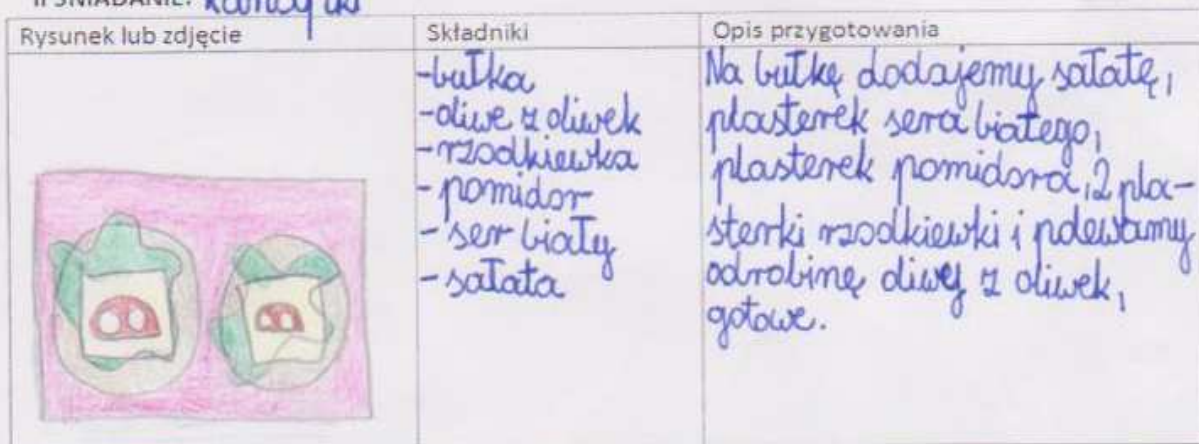 II ŚNIADANIE: kanapki
Rysunek lub zdjęcie
Składniki
Opis przygotowania
-bułka
-oliwe z oliwek
-rzodkiewka
- pomidor
- ser biały
- sałata
Na bułkę dodajemy sałatę,
plasterek sera białego,
plasterek pomidora, 2 pla-
sterki rzodkiewki i polewamy
odrobinę oliwej z oliwek,
gotowe.